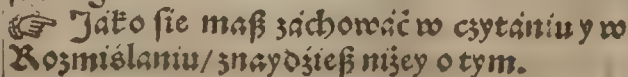 ☞ Jáko ſie maß záchowáć w czytániu y w
Rozmiślaniu/ znaydzieß niżey o tym.